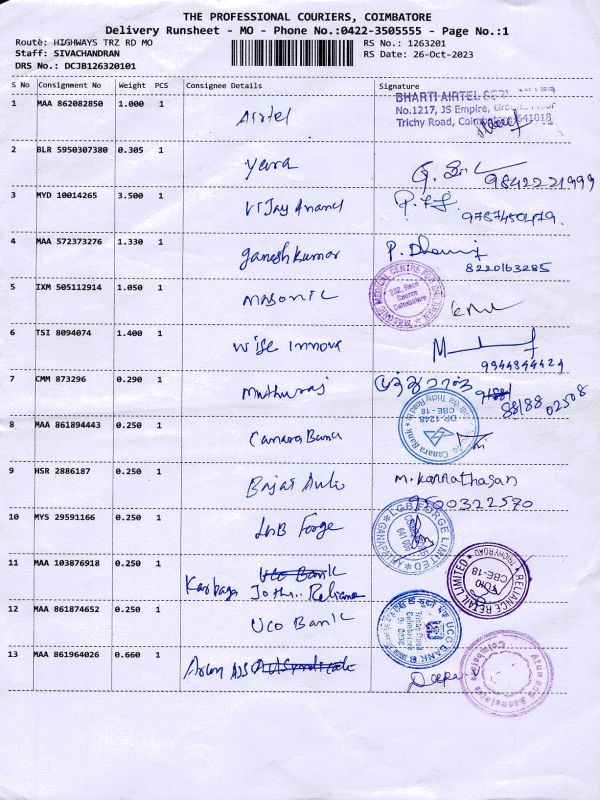 THE PROFESSIONAL COURIERS, COIMBATORE
Delivery Runsheet - MO - Phone No.:0422-3505555 - Page No.:1
Route: HIGHWAYS TRZ RD MO RS No.: 1263201
Staff: SIVACHANDRAN RS Date: 26-Oct-2023
DRS No.: DCJB126320101
S No Consignment No Weight PCS Consignee Details Signature
1 MAA 862082850 1.000 1 Airtel
BHARTI AIRTEL
No.1217, JS Empire,
Trichy Road, Coimbatore-641018
2 BLR 5950307380 0.305 1 Yava 9842221999
3 MYD 10014265 3.500 1 Vijay Anand 9787450479
4 MAA 572373276 1.330 1 ganesh kumar P. 8220163285
5 IXM 505112914 1.050 1 masonic
6 TSI 8094074 1.400 1 wise innova 9944844424
7 CMM 873296 0.290 1 muthuraj முத்துராஜ் 88188 02508
8 MAA 861894443 0.250 1 Canara Bank
Canara Bank
DP-1248
CBE-18
9 HSR 2886187 0.250 1 Bajaj Auto M. Kannathasan
9500322570
10 MYS 29591166 0.250 1 LGB Forge
LGB FORGE LIMITED
11 MAA 103876918 0.250 1 UCO Bank
Reliance
RELIANCE RETAIL LIMITED
TRICHY ROAD
CBE-18
12 MAA 861874652 0.250 1 UCO Bank
UCO BANK
13 MAA 861964026 0.660 1 Arun ADS